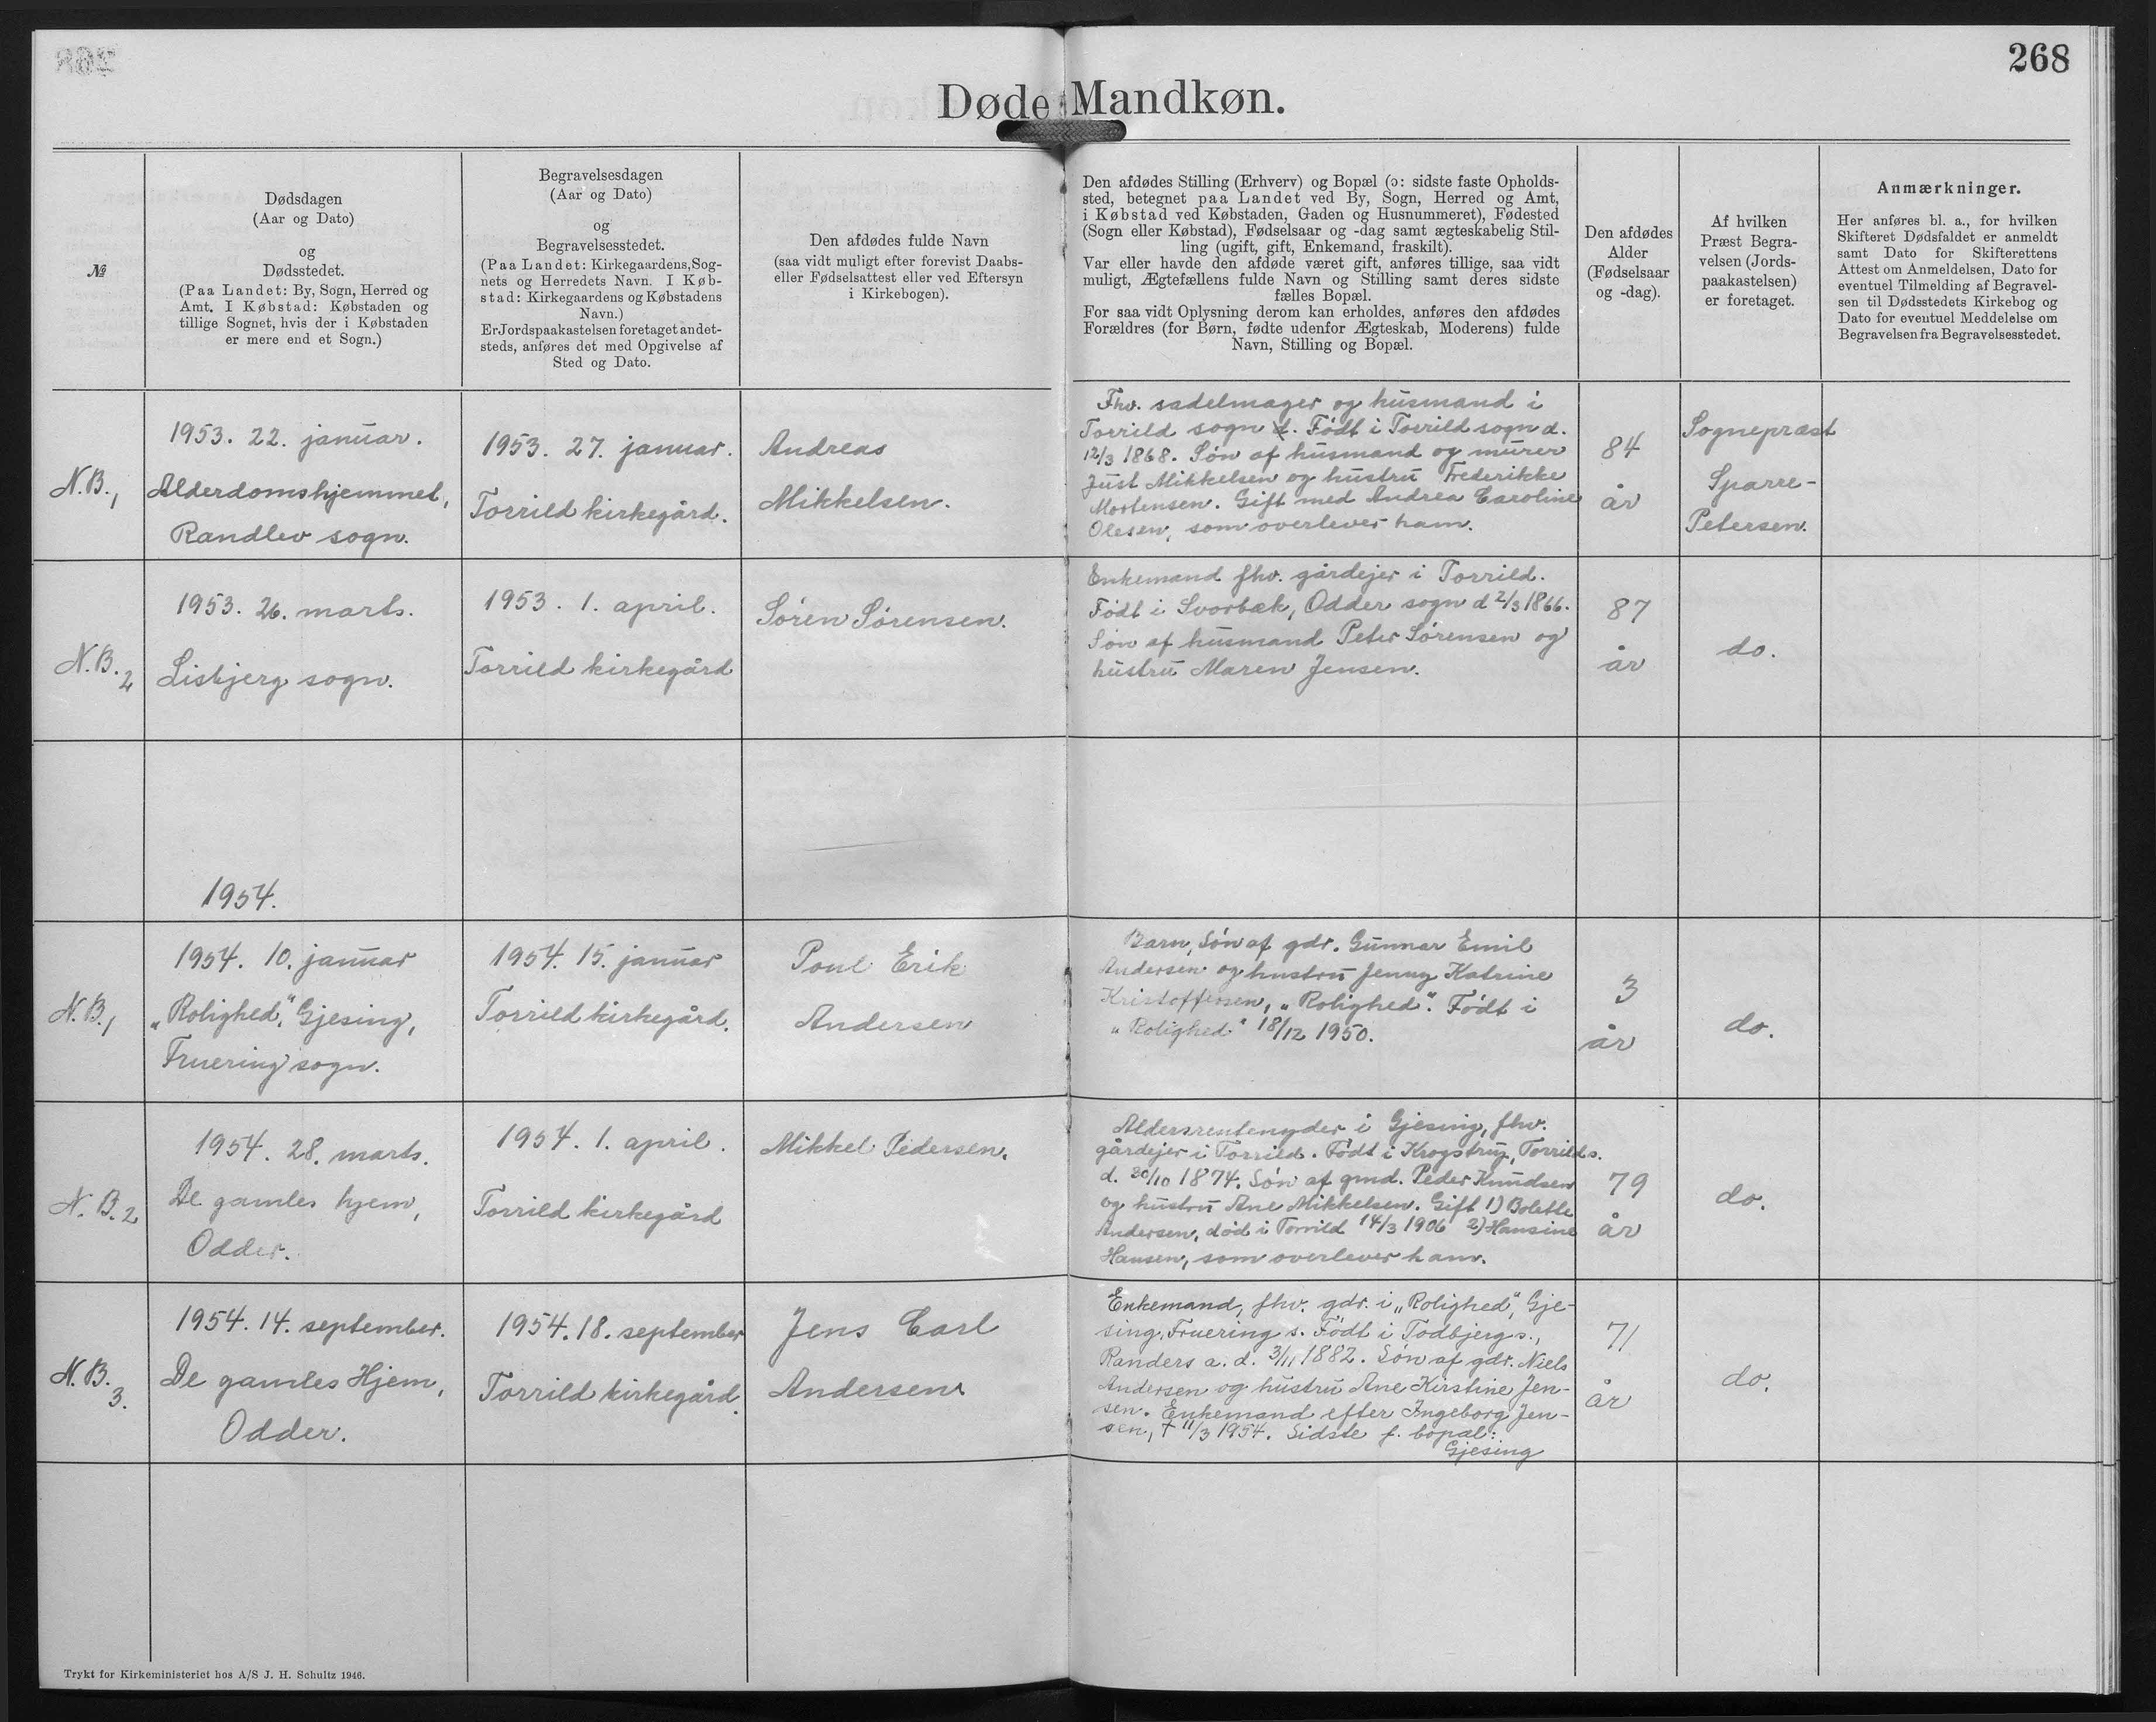 268
Døde Mandkøn.
№
Dødsdagen
(Aar og Dato)
og
Dødsstedet.
(Paa Landet: By, Sogn, Herred og
Amt. I Købstad: Købstaden og
tillige Sognet, hvis der i Købstaden
er mere end et Sogn.)
Begravelsesdagen
(Aar og Dato)
og
Begravelsesstedet.
(Paa Landet: Kirkegaardens, Sog-
nets og Herredets Navn. I Køb-
stad: Kirkegaardens og Købstadens
Navn.)
Er Jordspaakastelsen foretaget andet-
steds, anføres det med Opgivelse af
Sted og Dato.
Den afdødes fulde Navn
(saa vidt muligt efter forevist Daabs-
eller Fødselsattest eller ved Eftersyn
i Kirkebogen).
Den afdødes Stilling (Erhverv) og Bopæl (ɔ: sidste faste Opholds-
sted, betegnet paa Landet ved By, Sogn, Herred og Amt,
i Købstad ved Købstaden, Gaden og Husnummeret), Fødested
(Sogn eller Købstad), Fødselsaar og -dag samt ægteskabelig Stil-
ling (ugift, gift, Enkemand, fraskilt).
Var eller havde den afdøde været gift, anføres tillige, saa vidt
muligt, Ægtefællens fulde Navn og Stilling samt deres sidste
fælles Bopæl.
For saa vidt Oplysning derom kan erholdes, anføres den afdødes
Forældres (for Børn, fødte udenfor Ægteskab, Moderens) fulde
Navn, Stilling og Bopæl.
Den afdødes
Alder
(Fødselsaar
og -dag).
Af hvilken
Præst Begra-
velsen (Jords-
paakastelsen)
er foretaget.
Anmærkninger.
Her anføres bl. a., for hvilken
Skifteret Dødsfaldet er anmeldt
samt Dato for Skifterettens
Attest om Anmeldelsen, Dato for
eventuel Tilmelding af Begravel-
sen til Dødsstedets Kirkebog og
Dato for eventuel Meddelelse om
Begravelsen fra Begravelsesstedet.
N.B. 1
1953. 22. januar.
Alderdomshjemmet,
Randlev sogn.
1953. 27. januar.
Torrild kirkegård.
Andreas
Mikkelsen.
Fhv. sadelmager og husmand i
Torrild sogn d. Født i Torrild sogn d.
12/3 1868. Søn af husmand og murer
Just Mikkelsen og hustru Frederikke
Mortensen. Gift med Andrea Caroline
Olesen, som overlever ham.
84
år
Sognepræst
Sparre-
Petersen.
N.B. 2
1953. 26. marts.
Lisbjerg sogn.
1953. 1. april.
Torrild kirkegård
Søren Sørensen.
Enkemand fhv. gårdejer i Torrild.
Født i Svorbæk, Odder sogn d 2/3 1866.
Søn af husmand Peter Sørensen og
hustru Maren Jensen.
87
år
do.
1954.
N.B. 1
1954. 10. januar
„Rolighed", Gjesing,
Fruering sogn.
1954. 15. januar
Torrild kirkegård.
Poul Erik
Andersen
Barn, Søn af gdr. Gunnar Emil
Andersen og hustru Jenny Katrine
Kristoffersen, „Rolighed". Født i
„Rolighed" 18/12 1950.
3
år
do.
N.B. 2
1954. 28. marts.
De gamles hjem,
Odder.
1954. 1. april.
Torrild kirkegård
Mikkel Pedersen.
Aldersrentenyder i Gjesing, fhv.
gårdejer i Torrild. Født i Krogstrup, Torrild s.
d. 20/10 1874. Søn af gmd. Peder Knudsen
og hustru Ane Mikkelsen. Gift 1) Bolette
Andersen, død i Torrild 14/3 1906 2) Hansine
Hansen, som overlever ham.
79
år
do.
N.B. 3.
1954. 14. september.
De gamles Hjem,
Odder.
1954. 18. september
Torrild kirkegård.
Jens Carl
Andersen
Enkemand, fhv. gdr. i „Rolighed", Gje-
sing, Fruering s. Født i Todbjerg s.,
Randers a. d. 3/11 1882. Søn af gdr. Niels
Andersen og hustru Ane Kirstine Jen-
sen. Enkemand efter Ingeborg Jen-
sen, † 11/3 1954. Sidste f. bopæl:
Gjesing
71
år
do.
Trykt for Kirkeministeriet hos A/S J. H. Schultz 1946.